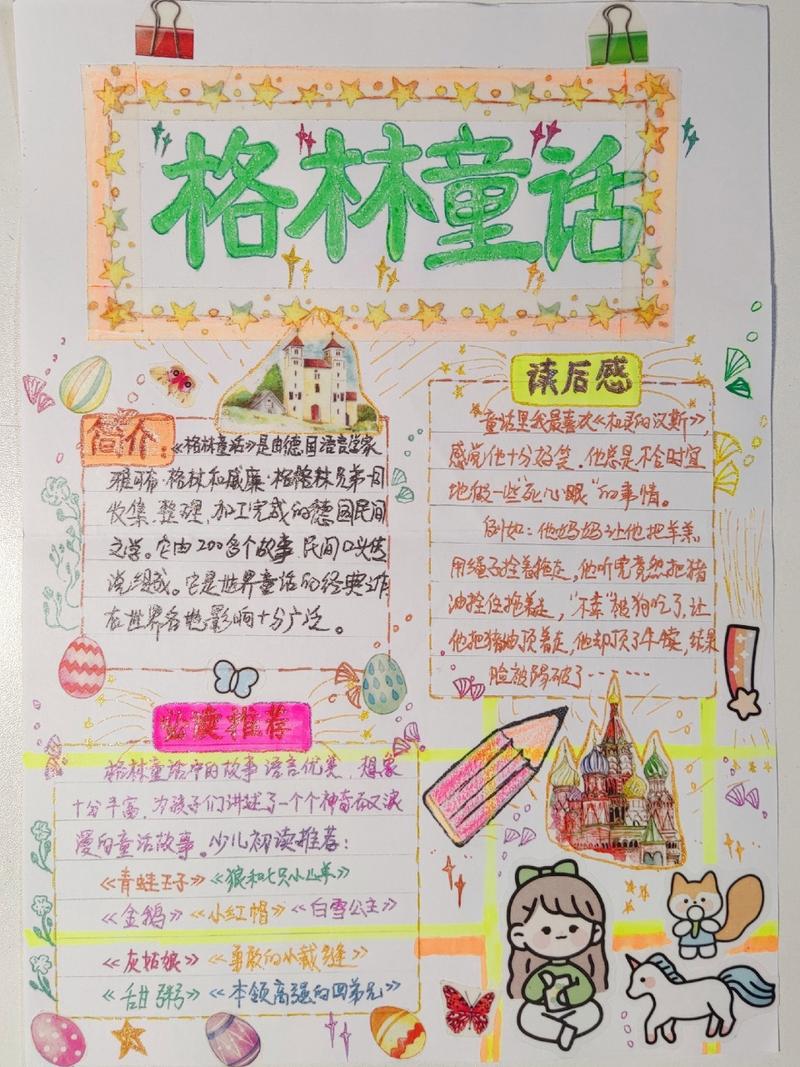 格林童话
简介:《格林童话》是由德国语言学家
雅可布·格林和威廉·格林兄弟一同
收集、整理、加工完成的德国民间
文学。它由200多个故事,民间口头传
说组成。它是世界童话的经典之作
在世界各地影响十分广泛。
读后感
童话里我最喜欢《机灵的汉斯》,
感觉他十分搞笑。他总是不合时宜
地做一些“死心眼”的事情。
例如:他妈妈让他把羊羔
用绳子拴着拖走,他听完竟然把猪
油拴住拖着走,“不幸”被狗吃了,让
他把猪油顶着走,他却顶了牛犊,结果
脸被踢破了······
必读推荐
格林童话中的故事语言优美、想象
十分丰富,为孩子们讲述了一个个神奇而又浪
漫的童话故事。少儿初读推荐:
《青蛙王子》《狼和七只小山羊》
《金鹅》《小红帽》《白雪公主》
《灰姑娘》《勇敢的小裁缝》
《甜粥》《本领高强的四弟兄》